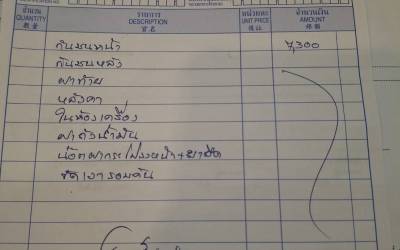 จำนวน รายการ หน่วยละ จำนวนเงิน
QUANTITY DESCRIPTION UNIT PRICE AMOUNT
กันชนหน้า 7,300
กันชนหลัง
ฝาท้าย
หลังคา
ในห้องเครื่อง
ฝาถังน้ำมัน
น๊อตฝากระโปรงหน้า
ขัดเงารอบคัน